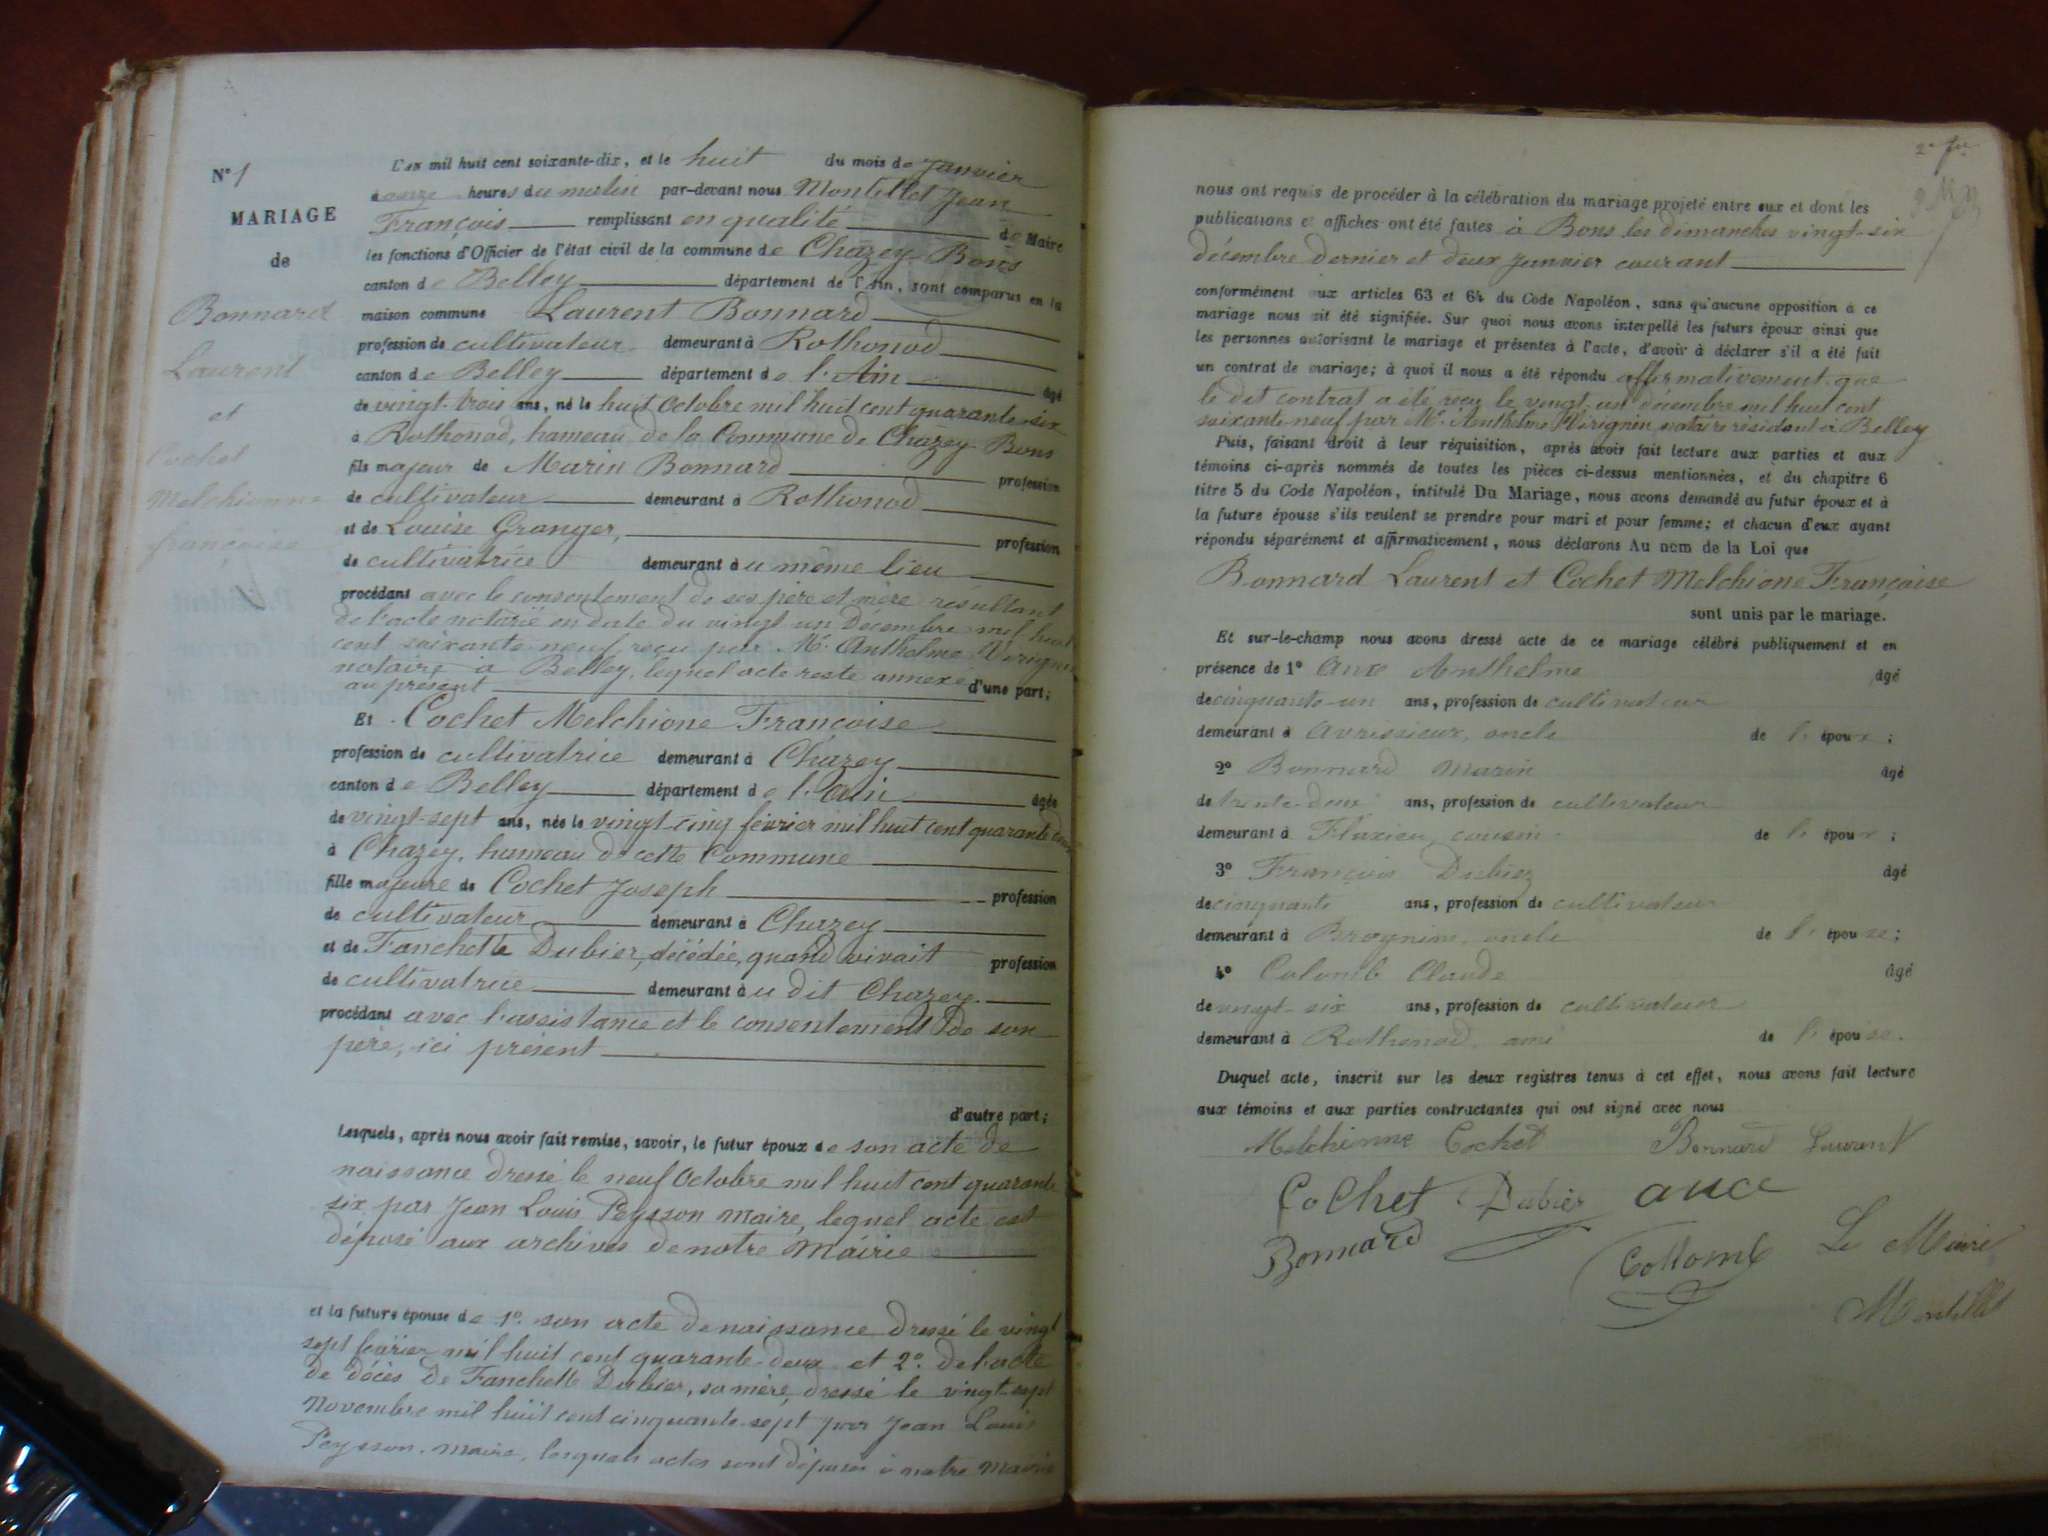 N° 1
MARIAGE
de
Bonnard
Laurent
et
Cochet
Melchionne
françoise
L'an mil huit cent soixante-dix, et le huit du mois de Janvier
à onze heures du matin par-devant nous Montillet Jean
François remplissant en qualité de Maire
les fonctions d'Officier de l'état civil de la commune de Chazey-Bons
canton de Belley département de l'Ain, sont comparus en la
maison commune Laurent Bonnard
profession de cultivateur demeurant à Rothonod
canton de Belley département de l'Ain âgé
de vingt-trois ans, né le huit Octobre mil huit cent quarante-six
à Rothonod, hameau de la Commune de Chazey-Bons
fils majeur de Marin Bonnard profession
de cultivateur demeurant à Rothonod
et de Louise Granger, profession
de cultivatrice demeurant au même lieu
procédant avec le consentement de ses père et mère résultant
de l'acte notarié en date du vingt un Décembre mil huit
cent soixante neuf, reçu par Me. Anthelme
notaire à Belley, lequel acte reste annexé
au présent d'une part;
Et Cochet Melchione Françoise
profession de cultivatrice demeurant à Chazey
canton de Belley département de l'Ain âgée
de vingt-sept ans, née le vingt-cinq février mil huit cent quarante deux
à Chazey, hameau de cette Commune
fille majeure de Cochet Joseph profession
de cultivateur demeurant à Chazey
et de Fanchette Dubier, décédée, quand vivait profession
de cultivatrice demeurant au dit Chazey
procédant avec l'assistance et le consentement de son
père, ici présent
d'autre part;
Lesquels, après nous avoir fait remise, savoir, le futur époux de son acte de
naissance dressé le neuf Octobre mil huit cent quarante
six par Jean Louis Peysson maire, lequel acte est
déposé aux archives de notre Mairie
et la future épouse de 1°. son acte de naissance dressé le vingt
sept février mil huit cent quarante-deux et 2°. de l'acte
de décès de Fanchette Dubier, sa mère, dressé le vingt-sept
Novembre mil huit cent cinquante-sept par Jean Louis
Peysson, maire, lesquels actes sont déposés à notre Mairie
nous ont requis de procéder à la célébration du mariage projeté entre eux et dont les
publications et affiches ont été faites à Bons les dimanches vingt-six
décembre dernier et deux Janvier courant
conformément aux articles 63 et 64 du Code Napoléon, sans qu'aucune opposition à ce
mariage nous ait été signifiée. Sur quoi nous avons interpellé les futurs époux ainsi que
les personnes autorisant le mariage et présentes à l'acte, d'avoir à déclarer s'il a été fait
un contrat de mariage; à quoi il nous a été répondu affirmativement que
le dit contrat a été reçu le vingt un décembre mil huit cent
soixante neuf par Me. Anthelme notaire résident à Belley
Puis, faisant droit à leur réquisition, après avoir fait lecture aux parties et aux
témoins ci-après nommés de toutes les pièces ci-dessus mentionnées, et du chapitre 6
titre 5 du Code Napoléon, intitulé Du Mariage, nous avons demandé au futur époux et à
la future épouse s'ils veulent se prendre pour mari et pour femme; et chacun d'eux ayant
répondu séparément et affirmativement, nous déclarons Au nom de la Loi que
Bonnard Laurent et Cochet Melchione Françoise
sont unis par le mariage.
Et sur-le-champ nous avons dressé acte de ce mariage célébré publiquement et en
présence de 1° Ance Anthelme âgé
de cinquante-un ans, profession de cultivateur
demeurant à Avrissieux, oncle de l'époux;
2° Bonnard Marin âgé
de trente-deux ans, profession de cultivateur
demeurant à Fluxieu, cousin de l'époux;
3° François Dubier âgé
de cinquante ans, profession de cultivateur
demeurant à oncle de l'épouse;
4° Colomb Claude âgé
de vingt-six ans, profession de cultivateur
demeurant à Rothonod, ami de l'épouse.
Duquel acte, inscrit sur les deux registres tenus à cet effet, nous avons fait lecture
aux témoins et aux parties contractantes qui ont signé avec nous
Melchionne Cochet Bonnard Laurent
Cochet Dubier ance
Bonnard Collomb Le Maire
Montillet